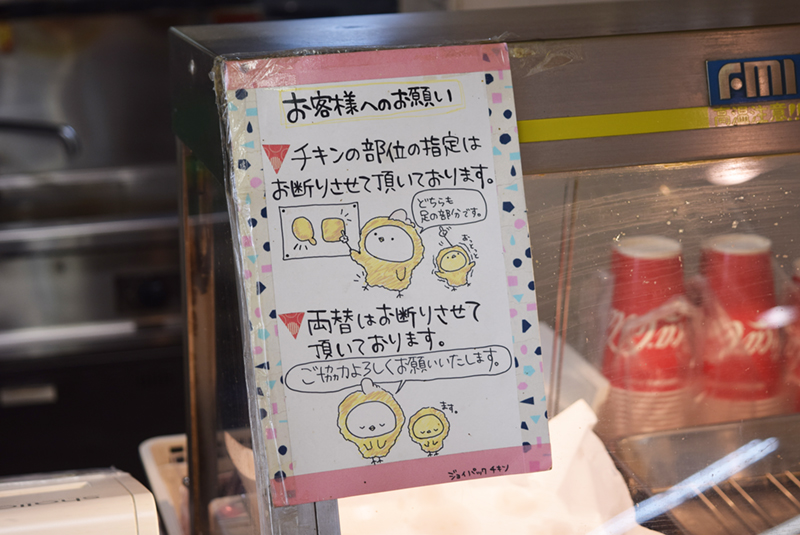 お客様へのお願い
チキンの部位の指定は
お断りさせて頂いております。
どちらも
足の部分です。
両替はお断りさせて
頂いております。
ご協力よろしくお願いいたします。
ます。
ジョイパックチキン
FMI